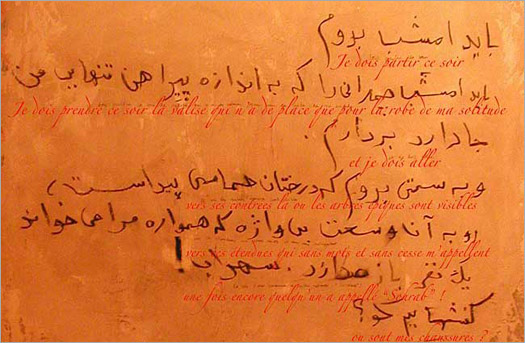 باید امشب بروم
Je dois partir ce soir
باید امشب چمدانی را که به اندازه پیراهن تنهایی من
Je dois prendre ce soir la valise qui n'a de place que pour la robe de ma solitude
جا دارد بردارم.
et je dois aller
و به سمتی بروم که درختان حماسی پیداست،
vers ses contrees la ou les arbres epiques sont visibles
رو به آن وسعت بی واژه که همواره مرا می خواند
vers ses etendues qui sans mots et sans cesse m'appellent
یک نفر باز صدا زد. سهراب!
une fois encore quelqu'un a appelle "Sohrab" !
کفشهایم کو؟
ou sont mes chaussures ?